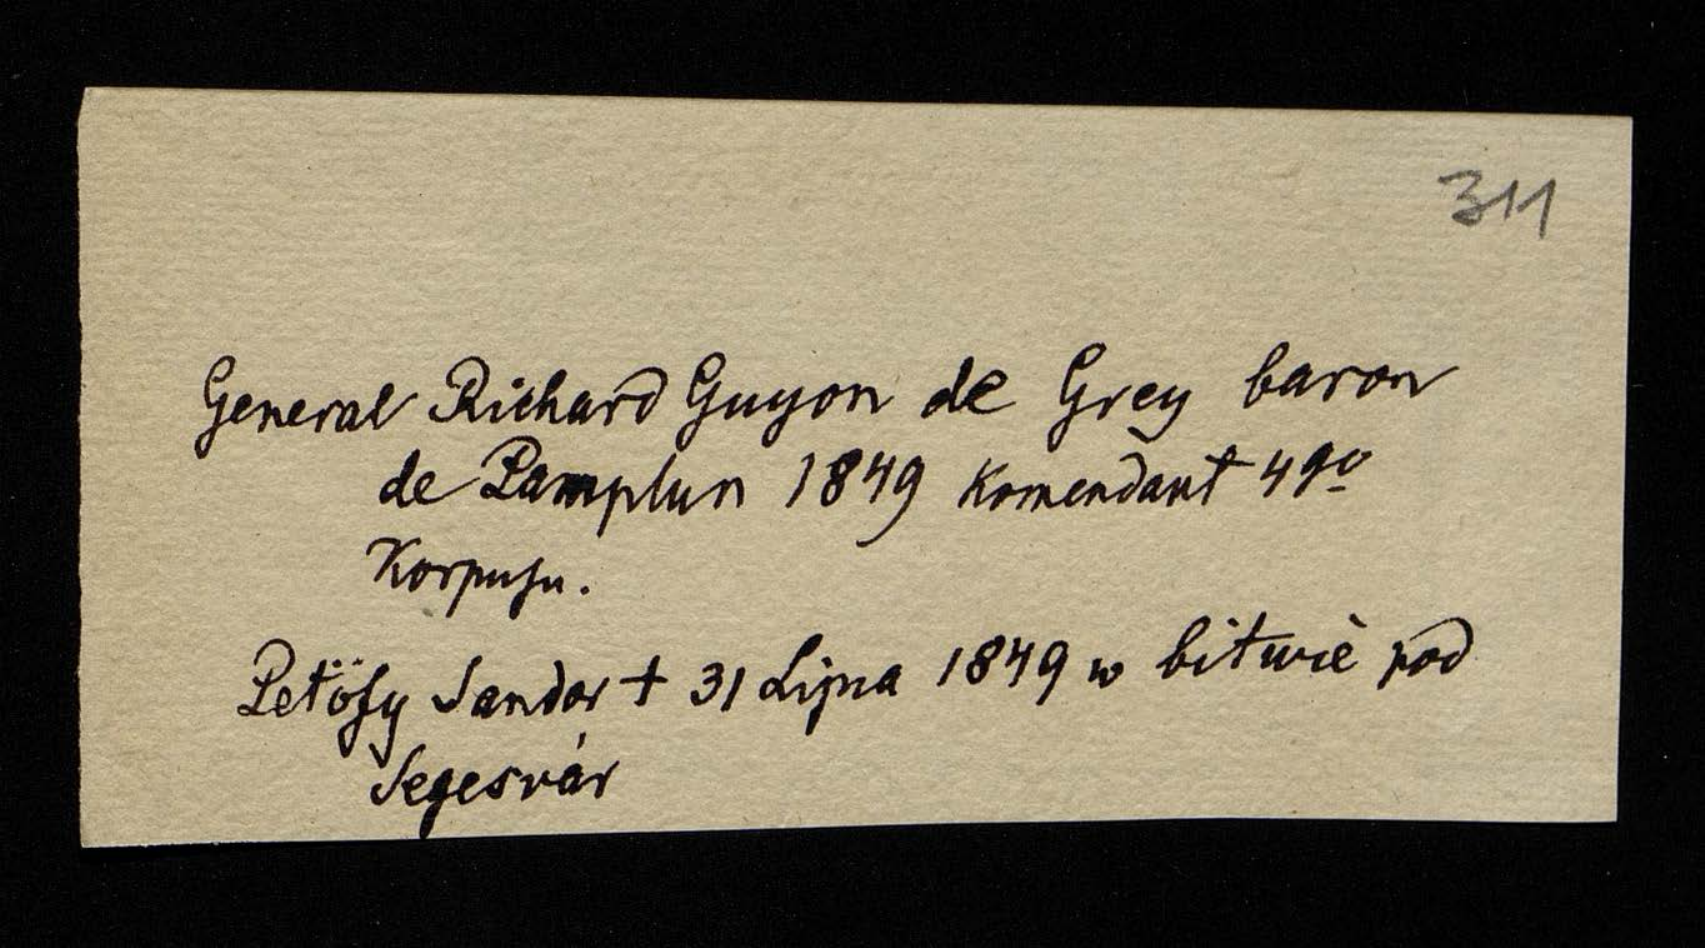 311
General Richard Guyon de Grey baron
de Pamplun 1849 Komendant 4go
Korpusu.
Petöfy Sandor † 31 Lipca 1849 w bitwie pod
Segesvár